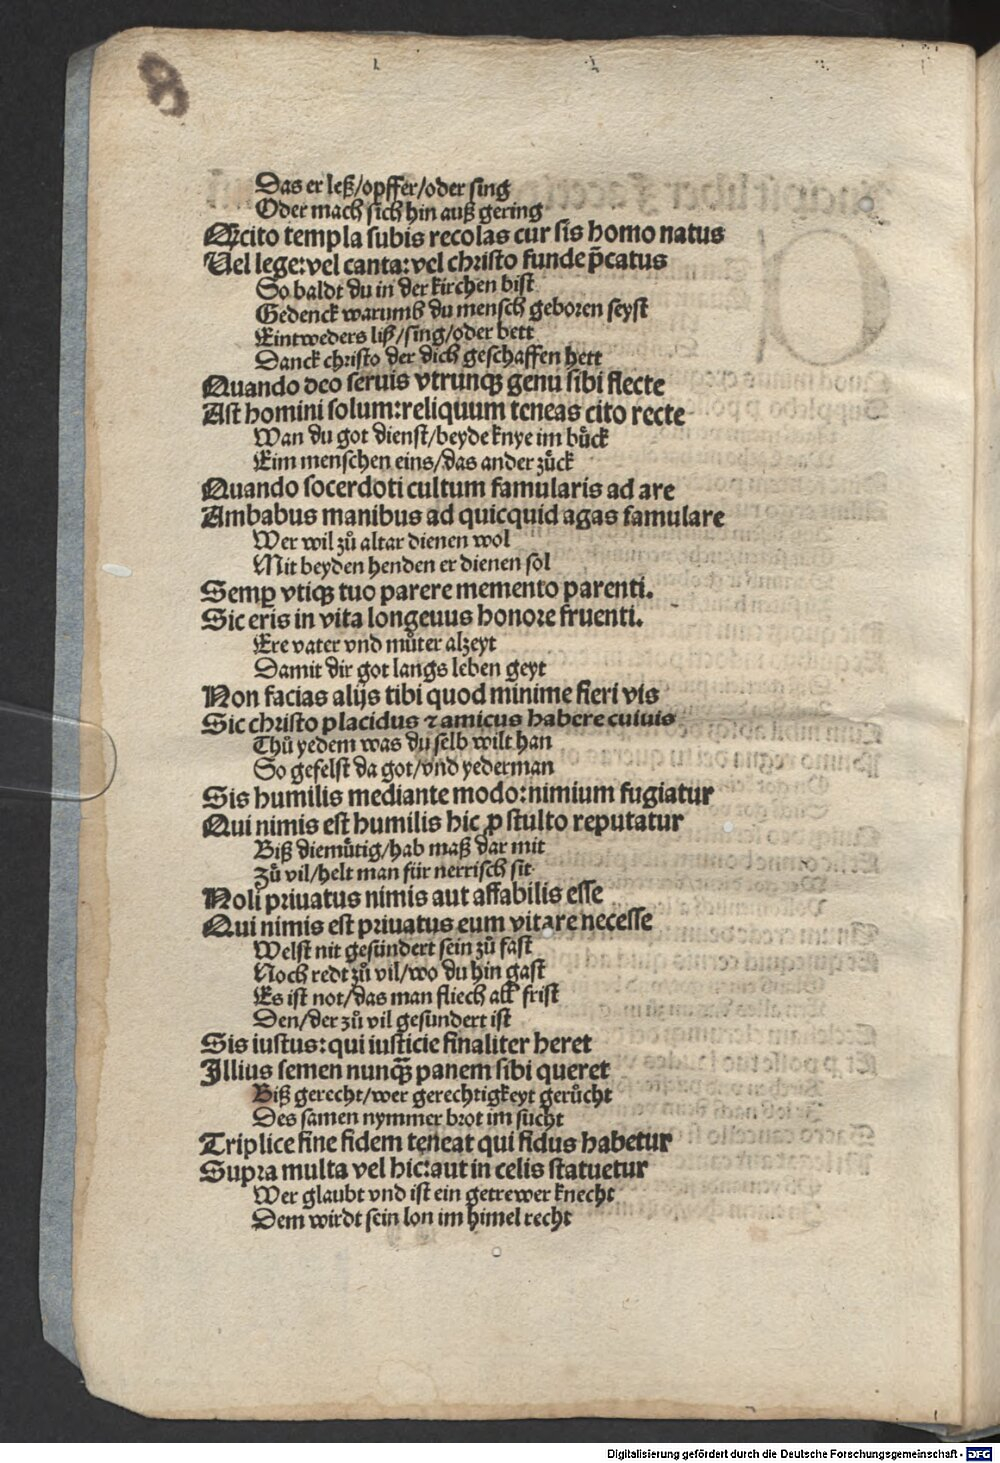 Das er leß/opffer/oder sing
Oder mach sich hin auß gering
Cito templa subis recolas cur sis homo natus
Vel lege:vel canta:vel christo funde p̄catus
So baldt du in der kirchen bist
Gedenck warumb du mensch geboren seyst
Eintweders liß/sing/oder bett
Danck christo der dich geschaffen hett
Quando deo seruis vtrunqꝫ genu sibi flecte
Ast homini solum:reliquum teneas cito recte
Wan du got dienst/beyde knye im buͤck
Eim menschen eins/das ander zuͤck
Quando socerdoti cultum famularis ad are
Ambabus manibus ad quicquid agas famulare
Wer wil zuͦ altar dienen wol
Mit beyden henden er dienen sol
Semꝑ vtiqꝫ tuo parere memento parenti.
Sic eris in vita longeuus honore fruenti.
Ere vater vnd muͦter alzeyt
Damit dir got langs leben geyt
Non facias alijs tibi quod minime fieri vis
Sic christo placidus ⁊ amicus habere cuiuis
Thuͦ yedem was du selb wilt han
So gefelst da got/vnd yederman
Sis humilis mediante modo:nimium fugiatur
Qui nimis est humilis hic ꝓ stulto reputatur
Biß diemuͤtig/hab maß dar mit
Zuͦ vil/helt man für nerrisch sit
Noli priuatus nimis aut affabilis esse
Qui nimis est priuatus eum vitare necesse
Welst nit gesündert sein zuͦ fast
Noch redt zuͦ vil/wo du hin gast
Es ist not/das man fliech all frist
Den/der zuͦ vil gesundert ist
Sis iustus:qui iusticie finaliter heret
Illius semen nunqꝫ̄ panem sibi queret
Biß gerecht/wer gerechtigkeyt geruͤcht
Des samen nymmer brot im sucht
Triplice fine fidem teneat qui fidus habetur
Supra multa vel hic:aut in celis statuetur
Wer glaubt vnd ist ein getrewer knecht
Dem wirdt sein lon im himel recht
Digitalisierung gefördert durch die Deutsche Forschungsgemeinschaft - DFG